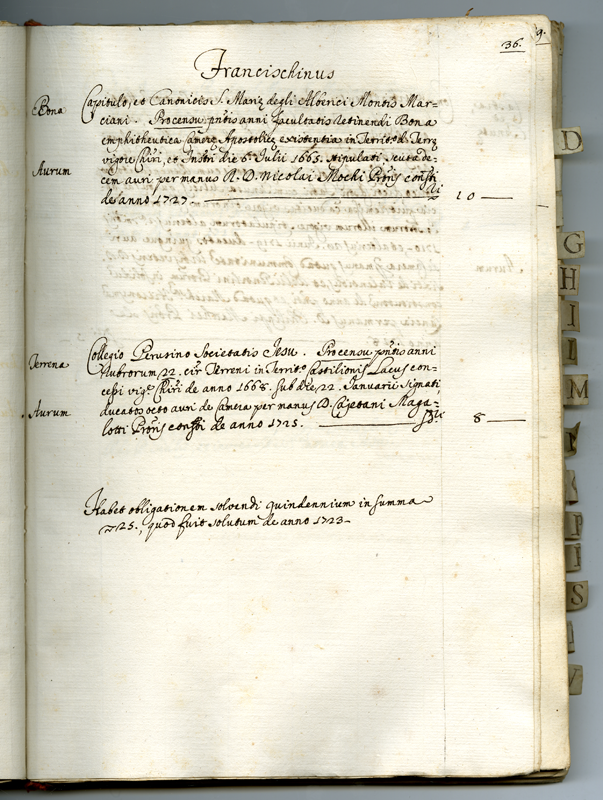 36.
9.
Francischinus
Bona
Capitulo, et Canonicis S. Mariæ degli Alberici Montis Mar=
ciani. Pro censu pñtis anni facultatis retinendi Bona
emphitheutica Cameræ Apostolicæ existentia in Territ.º d. Terræ
vigore Chiri, et Instri die 6. Julii 1665. stipulati scuta de=
Aurum
cem auri per manus R. D. Nicolai Procuris constit
de anno 1727. 10
Terrena
Collegio Perusino Societatis Jesu. Pro censu pñtis anni
Rubrorum 22. cir Terreni in Territ.º Castilionis Lacus con=
cessi vig.e Chiri de anno 1668. sub die 22. Januarii signati,
Aurum
ducatos octo auri de Camera per manus D. Cajetani Maga=
lotti Proris constit de anno 1725. 8
Habet obligationem solvendi quindennium in summa
25., quod fuit solutum de anno 1723.
D
G
H
I
L
M
P
I
S
V